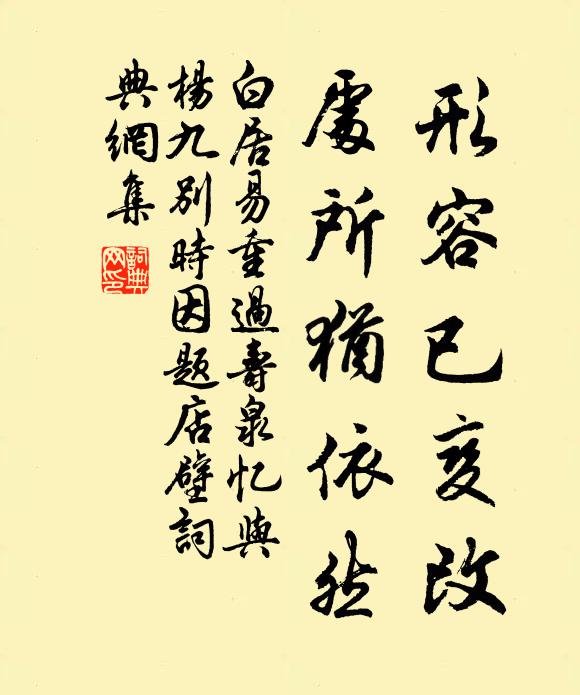 形容已变改
處所猶依然
白居易重過壽泉忆與
楊九别時因题店壁詞
典網集
詞典網印